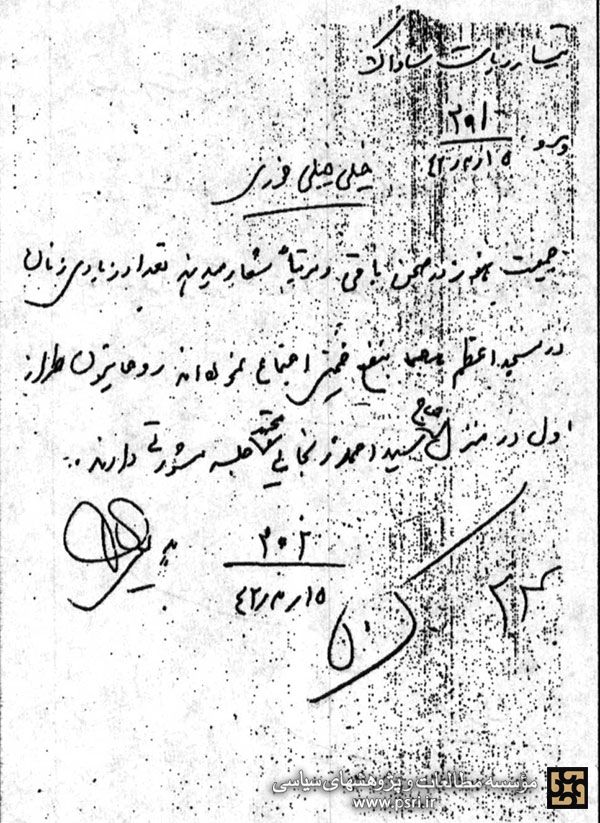 تیمسار ریاست ساواک
پیرو ۲۹۱
۱۵ر۳ر۴۲
خیلی خیلی فوری
جمعیت هنوز در صحن باقی و مرتباً شعار میدهند تعداد زیادی زنان
در مسجد اعظم بنفع خمینی اجتماع نموده‌اند روحانیون طراز
اول در منزل حاج سید احمد زنجانی مجتهد جلسه مشورتی دارند.
۳۰۲
۱۵ر۳ر۴۲
مؤسسه مطالعات و پژوهشهای سیاسی
www.psri.ir